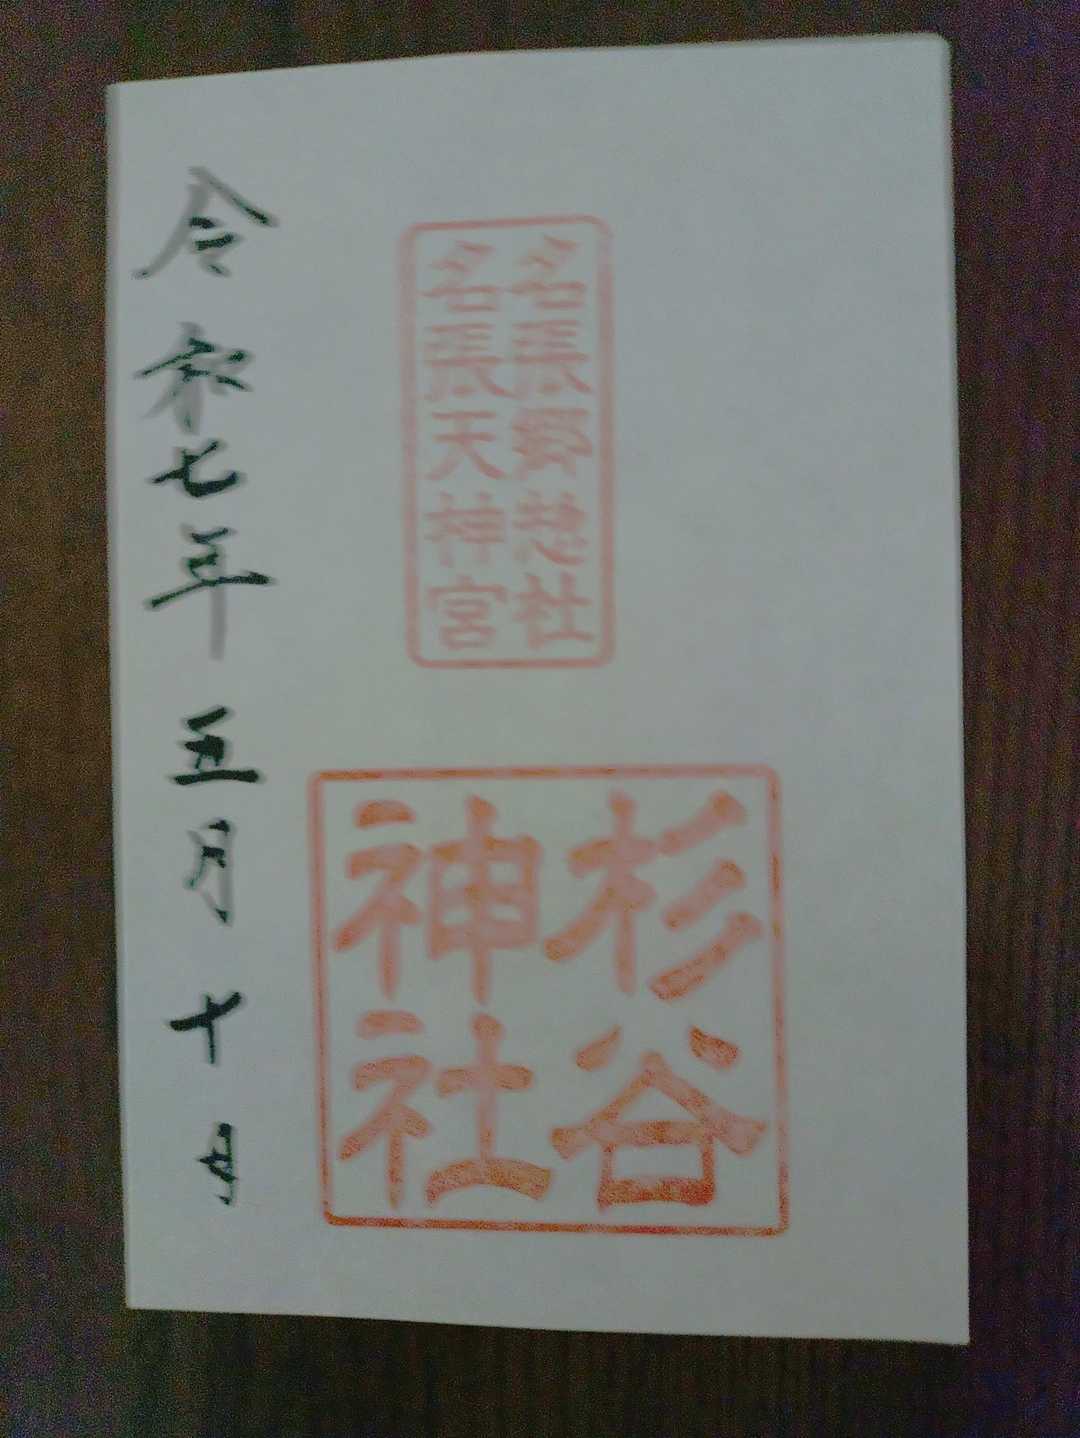 名張郷惣社
名張天神宮
杉谷
神社
令和七年五月十日